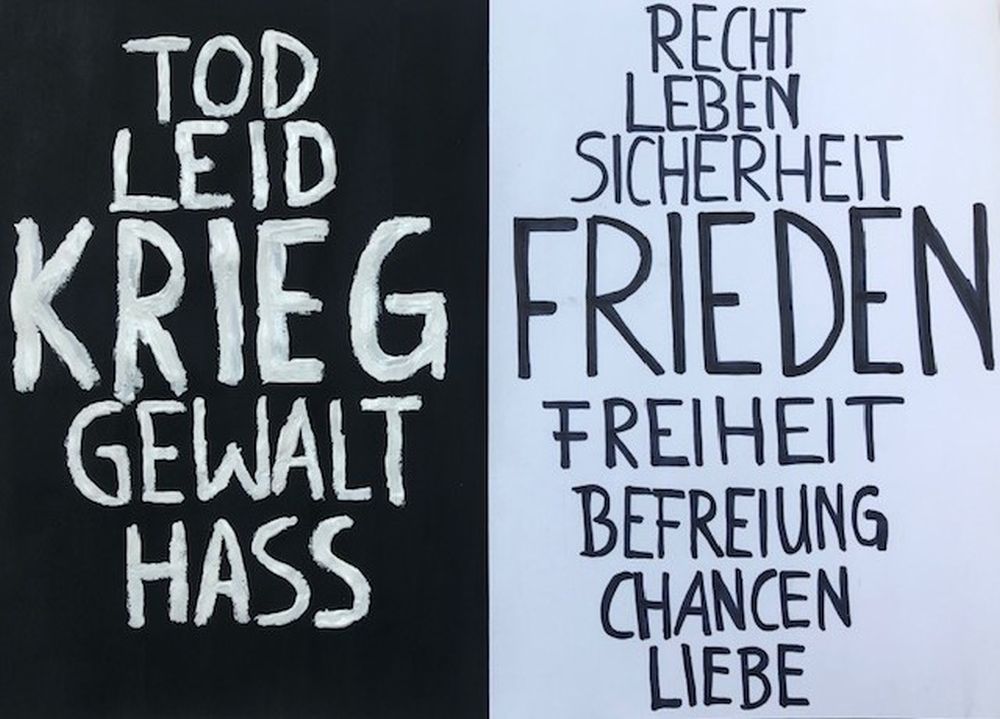 TOD
LEID
KRIEG
GEWALT
HASS
RECHT
LEBEN
SICHERHEIT
FRIEDEN
FREIHEIT
BEFREIUNG
CHANCEN
LIEBE